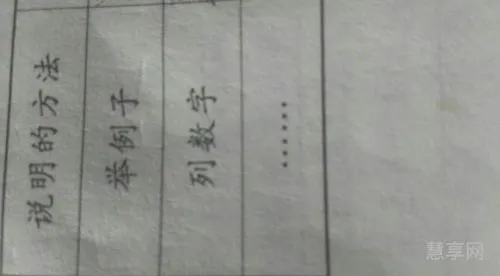 说明的方法
举例子
列数字
……
慧享网